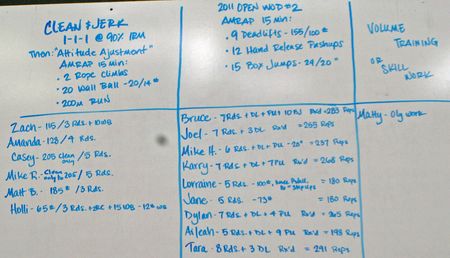 CLEAN & JERK
1-1-1 @ 90% 1RM
Then: "Attitude Ajustment"
AMRAP 15 min:
• 2 Rope Climbs
• 20 Wall Ball - 20/14#
• 200m RUN
Zach - 115/3 Rds. + 10WB
Amanda - 123/4 Rds.
Casey - 205 Clean only /5 Rds.
Mike R. - Clean only 205/5 Rds.
Matt B. - 185#/3 Rds.
Holli - 65#/3 Rds. + 2RC + 15WB - 12# WB
2011 OPEN WOD #2
AMRAP 15 min:
• 9 Deadlifts - 155/100#
• 12 Hand Release Pushups
• 15 Box Jumps - 24/20"
Bruce - 7 Rds + DL + PU + 10 BJ Rx'd - 283 Reps
Joel - 7 Rds. + 3 DL Rx'd = 255 Reps
Mike H. - 6 Rds. + DL + PU - 20" = 237 Reps
Karry - 7 Rds. + DL + 7 PU Rx'd = 268 Reps
Lorraine - 5 Rds. - 100#, Step ups = 180 Reps
Jane - 5 Rds. - 73# = 180 Reps
Dylan - 7 Rds + DL + 4 PU Rx'd = 265 Reps
Aileah - 5 Rds. + DL + 9 PU Rx'd = 198 Reps
Tara - 8 Rds + 3 DL Rx'd = 291 Reps
VOLUME
TRAINING
OR
SKILL
WORK
Matty - Oly work